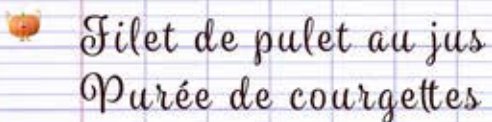 Filet de pulet au jus
Purée de courgettes